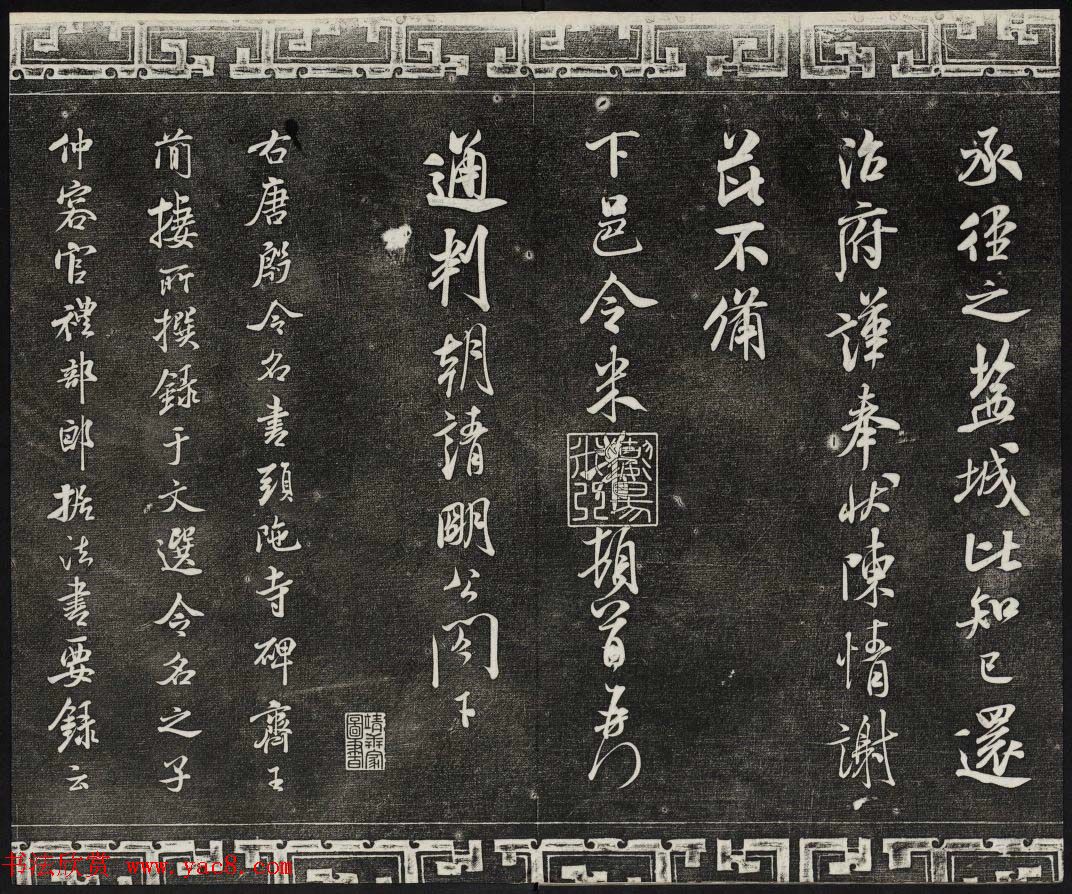 承徑之盐城比知已還
治府謹奉狀陳情謝
茲不備
下邑令米 頓首再
通判朝請明公閤下
右唐殷令名書頭陁寺碑齊王
簡棲所撰錄于文選令名之子
仲容官禮部郎据法書要錄云
圖書
书法欣赏 www.yac8.com